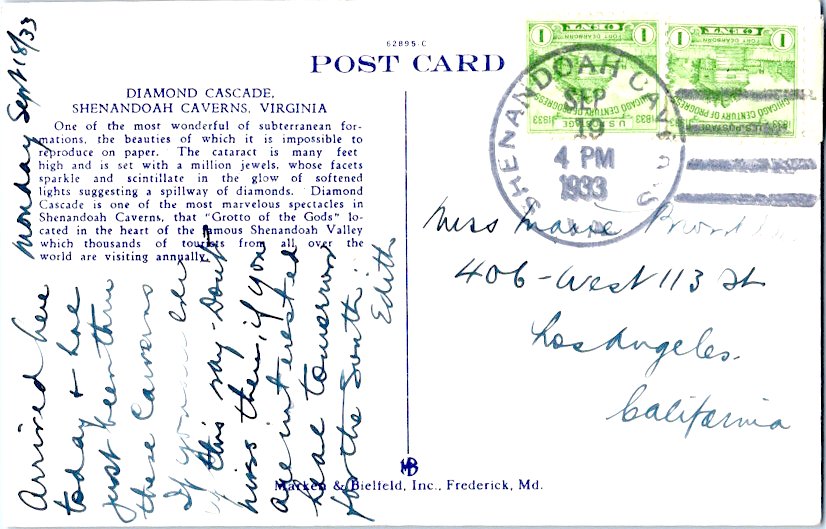 62895-C
POST CARD
DIAMOND CASCADE,
SHENANDOAH CAVERNS, VIRGINIA
One of the most wonderful of subterranean for-
mations, the beauties of which it is impossible to
reproduce on paper. The cataract is many feet
high and is set with a million jewels, whose facets
sparkle and scintillate in the glow of softened
lights suggesting a spillway of diamonds. Diamond
Cascade is one of the most marvelous spectacles in
Shenandoah Caverns, that "Grotto of the Gods" lo-
cated in the heart of the famous Shenandoah Valley
which thousands of tourists from all over the
world are visiting annually.
Monday Sept 18/33
Arrived here
today +
just been thru
these Caverns
If you
this way - Don't
miss them, if you
are interested
tomorrow
for the South.
Edith
1 CENT 1
FORT DEARBORN
CHICAGO CENTURY OF PROGRESS
1833 U.S. POSTAGE 1933
1 CENT 1
FORT DEARBORN
CHICAGO CENTURY OF PROGRESS
1833 U.S. POSTAGE 1933
SHENANDOAH CAVERNS
VA
SEP
19
4 PM
1933
Miss
406-West 113 St
Los Angeles.
California
Marken & Bielfeld, Inc., Frederick, Md.